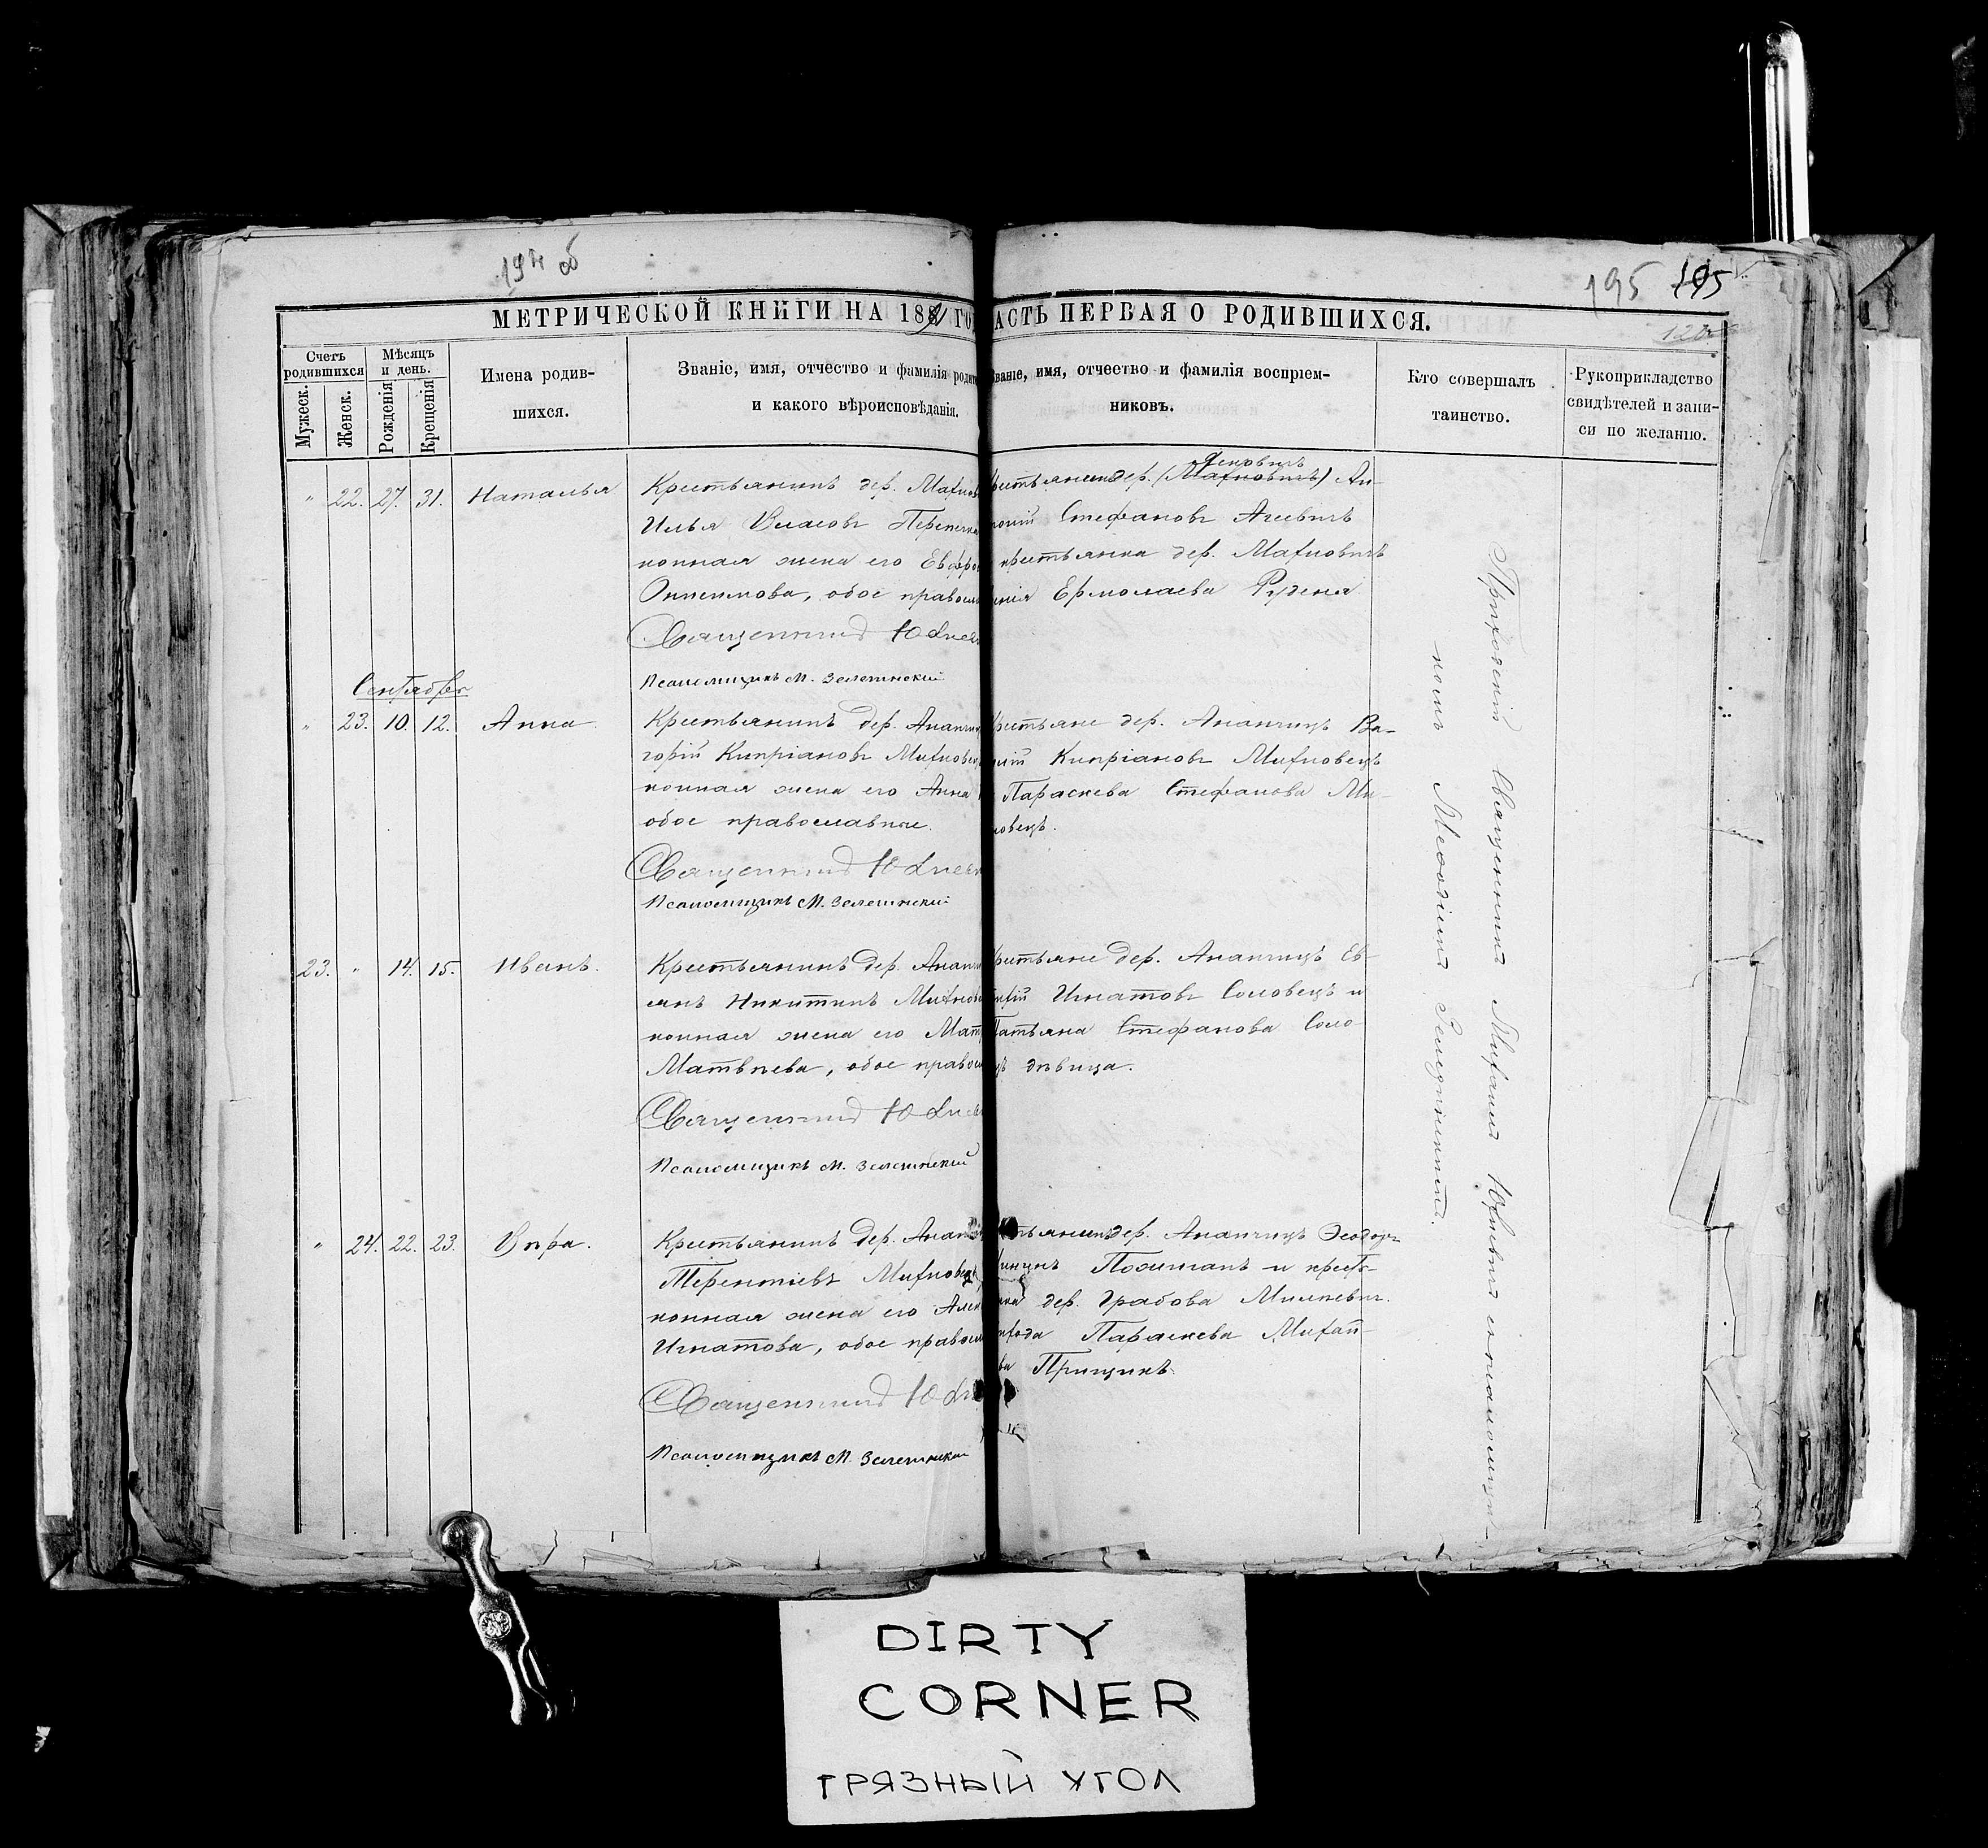 194 об
195 195
МЕТРИЧЕСКОЙ КНИГИ НА 188 ГО
АСТЬ ПЕРВАЯ О РОДИВШИХСЯ.
Счетъ родившихся
Мужеск.
Женск.
Мѣсяцъ и день.
Рожденія
Крещенія
Имена родив-
шихся.
Званіе, имя, отчество и фамилія родит
и какого вѣроисповѣданія.
Званіе, имя, отчество и фамилія воспріем-
никовъ.
Кто совершалъ
таинство.
Рукоприкладство
свидѣтелей и запи-
си по желанію.
" 22. 27. 31. Наталья
Крестьянинъ дер. Махнов
Илья Власовъ Перепечка
конная жена его Евфро
Онисимова, обое правосл
Священникъ
Псаломщикъ М. Зелепинский
рестьянинъ дер. (Махновичъ) Ан-
тоній Стефановъ Ачевичъ
крестьянка дер. Махновичъ
енія Ермолаева Рудена
Сентябрь
" 23. 10. 12. Анна.
Крестьянинъ дер. Ананчи
горій Кипріановъ Михновец
конная жена его Анна
обое православные.
Священникъ
Псаломщикъ М. Зелепинский
рестьяне дер. Ананчицъ Ва-
силій Кипріановъ Михновецъ
Параскева Стефанова Ми-
новецъ.
23. " 14. 15. Иванъ.
Крестьянинъ дер. Ананч
янъ Никитинъ Михнове
конная жена его Мат
Матвѣева, обое правосл
Священникъ
Псаломщикъ М. Зелепинский
рестьяне дер. Ананчицъ Ев-
Игнатовъ Соловецъ и
Татьяна Стефанова Соло-
цъ дѣвица.
" 24. 22. 23. Вѣра.
Крестьянинъ дер. Ананч
Терентіевъ Михновецъ
конная жена его Алек
Игнатова, обое правосл
Священникъ
Псаломщикъ М. Зелепинский
тьянинъ дер. Ананчицъ Ѳеодоръ
и крестъ-
дер. Грабова
Параскева Михай-
ва Прищикъ.
Приходскій Священникъ съ псаломщи-
комъ
DIRTY
CORNER
ГРЯЗНЫЙ УГОЛ